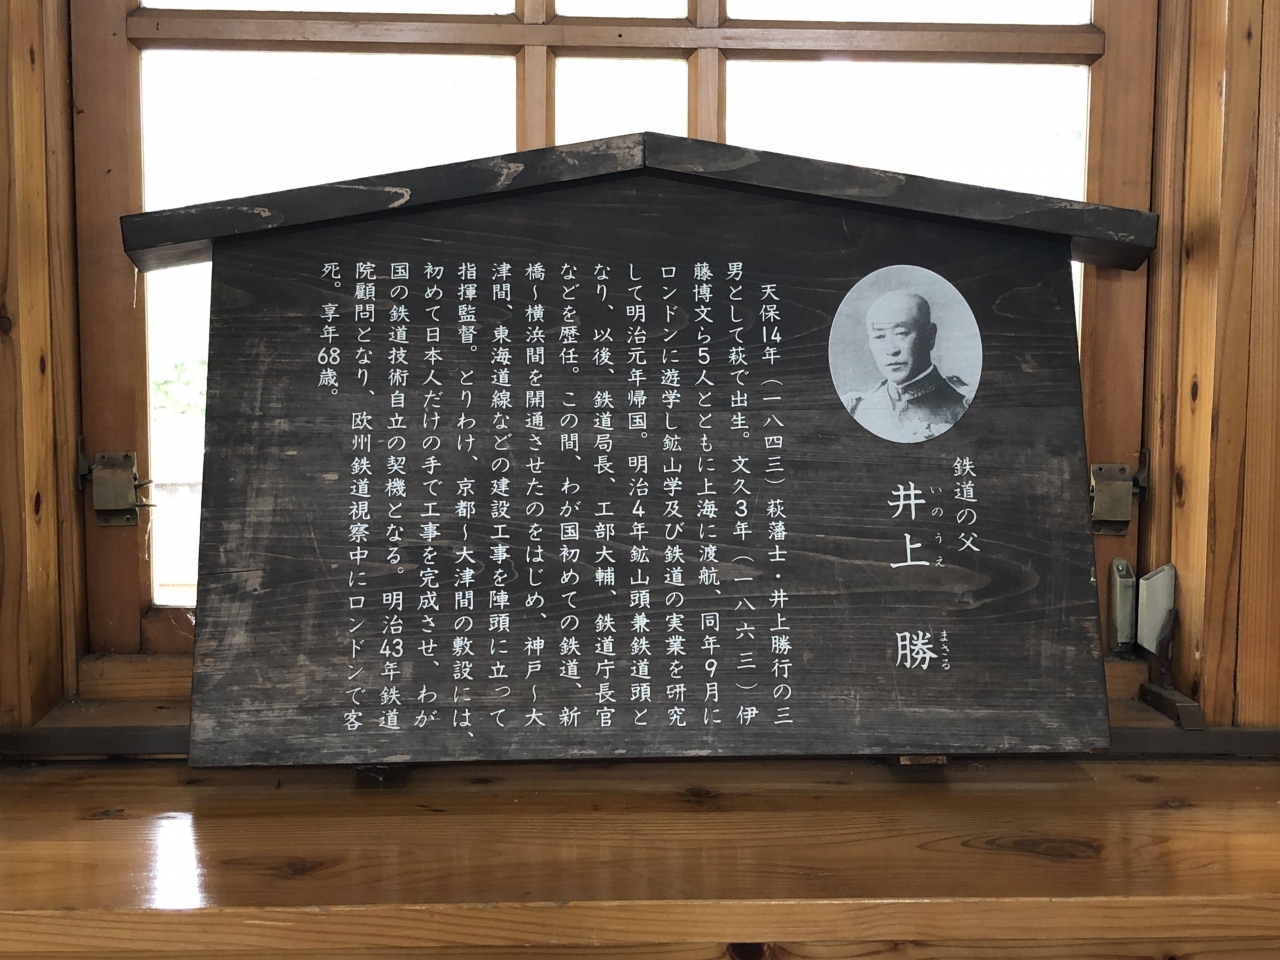 鉄道の父
井上 勝
いのうえ まさる
天保14年（一八四三）萩藩士・井上勝行の三
男として萩で出生。文久3年（一八六三）伊
藤博文ら5人とともに上海に渡航、同年9月に
ロンドンに遊学し鉱山学及び鉄道の実業を研究
して明治元年帰国。明治4年鉱山頭兼鉄道頭と
なり、以後、鉄道局長、工部大輔、鉄道庁長官
などを歴任。この間、わが国初めての鉄道、新
橋〜横浜間を開通させたのをはじめ、神戸〜大
津間、東海道線などの建設工事を陣頭に立って
指揮監督。とりわけ、京都〜大津間の敷設には、
初めて日本人だけの手で工事を完成させ、わが
国の鉄道技術自立の契機となる。明治43年鉄道
院顧問となり、欧州鉄道視察中にロンドンで客
死。享年68歳。